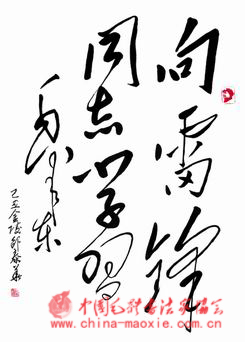 向雷锋
同志学习
毛泽东
己丑金陵邱春华
中国毛料书法家协会
www.china-maoxie.com.cn